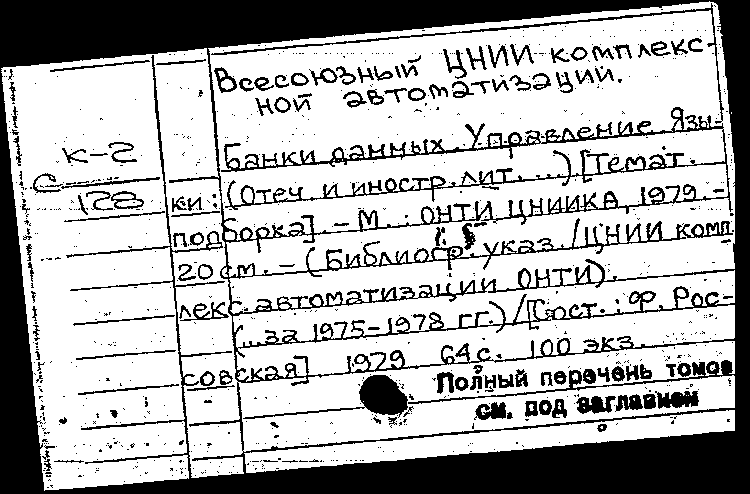 Всесоюзный ЦНИИ комплекс-
ной автоматизации.
К-2
С
128
Банки данных. Управление. Язы-
ки: (Отеч. и иностр. лит. ...) [Темат.
подборка]. – М.: ОНТИ ЦНИИКА, 1979. –
20 см. – (Библиогр. указ. / ЦНИИ комп
лекс. автоматизации ОНТИ).
(...за 1975–1978 гг.) / [Сост.: Ф. Рос-
совская]. 1979. 64 с. 100 экз.
Полный перечень томов
см. под заглавием